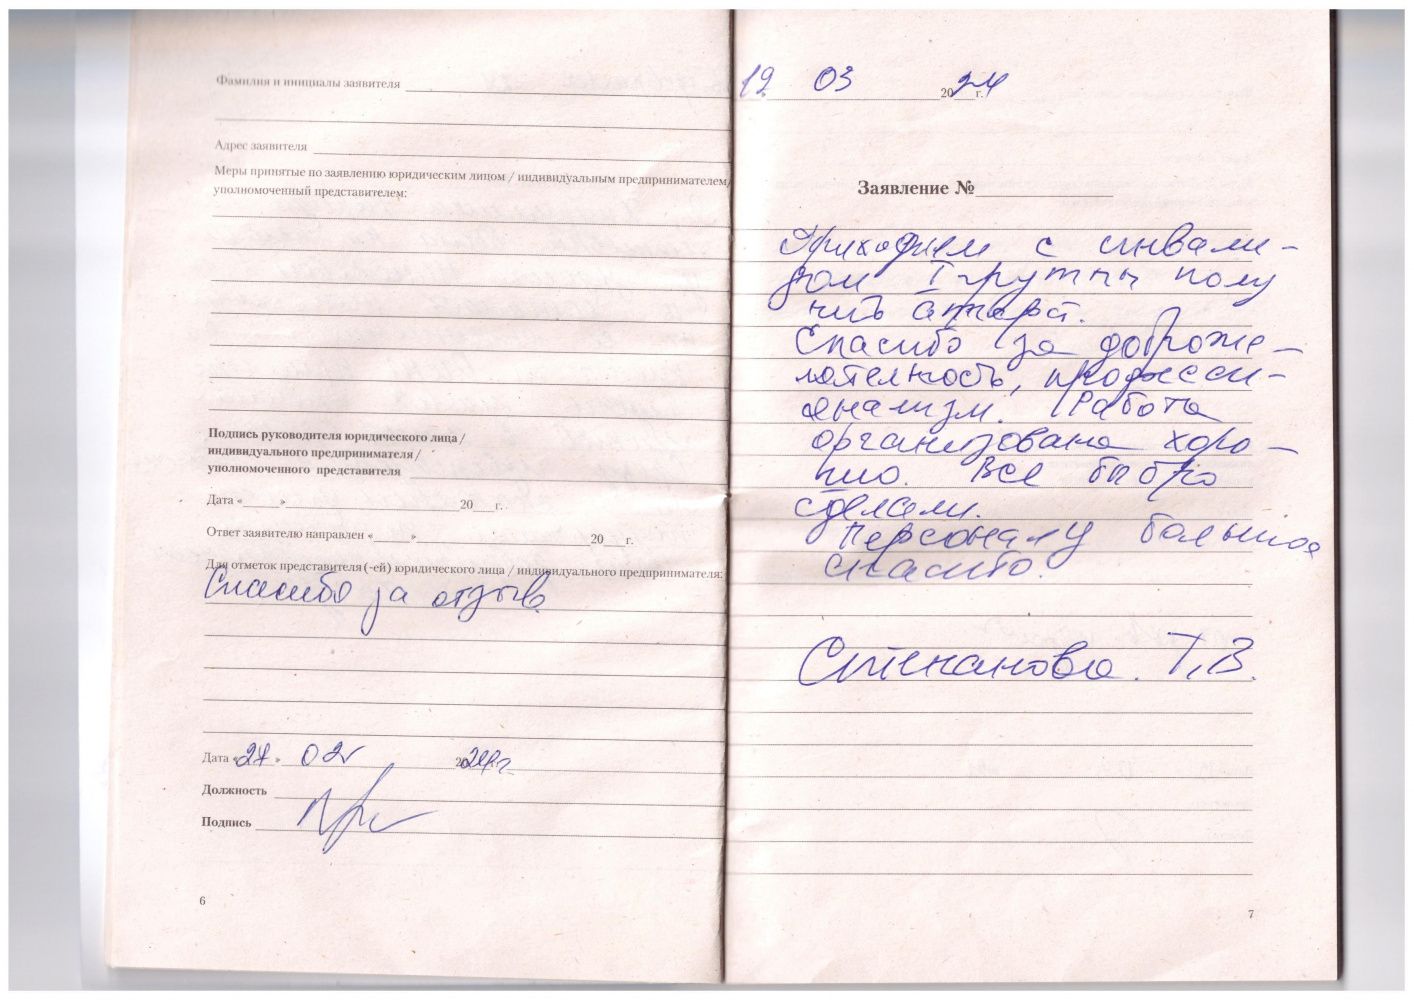 Фамилия и инициалы заявителя
Адрес заявителя
Меры принятые по заявлению юридическим лицом / индивидуальным предпринимателем/
уполномоченный представителем:
Подпись руководителя юридического лица /
индивидуального предпринимателя /
уполномоченного представителя
Дата «____»____________20___г.
Ответ заявителю направлен «____»____________20___г.
Для отметок представителя (-ей) юридического лица / индивидуального предпринимателя:
Спасибо за отзыв.
Дата «27» 02 2024г.
Должность
Подпись
6
12 03 2024 г.
Заявление №
Приходили с инвали-
дом I группы полу
чить аппарат.
Спасибо за доброже-
лательность, професси-
анализм. Работа
организована хоро-
шо. Все быстро
сделали.
Персоналу большое
спасибо.
Степанова. Т.В.
7